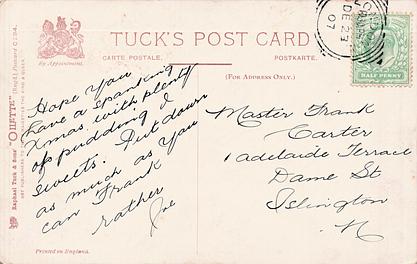 TUCK'S POST CARD
CARTE POSTALE.
POSTKARTE.
(FOR ADDRESS ONLY.)
By Appointment.
Raphael Tuck & Sons' "OILETTE"
DE 23
07
HALF PENNY
Hope you
have a spanking
Xmas with plenty
of pudding &
sweets. Put down
as much as you
can Frank
rather
Joe
Master Frank
Carter
1 adelaide Terrace
Dame St
Islington
N
Printed in England.